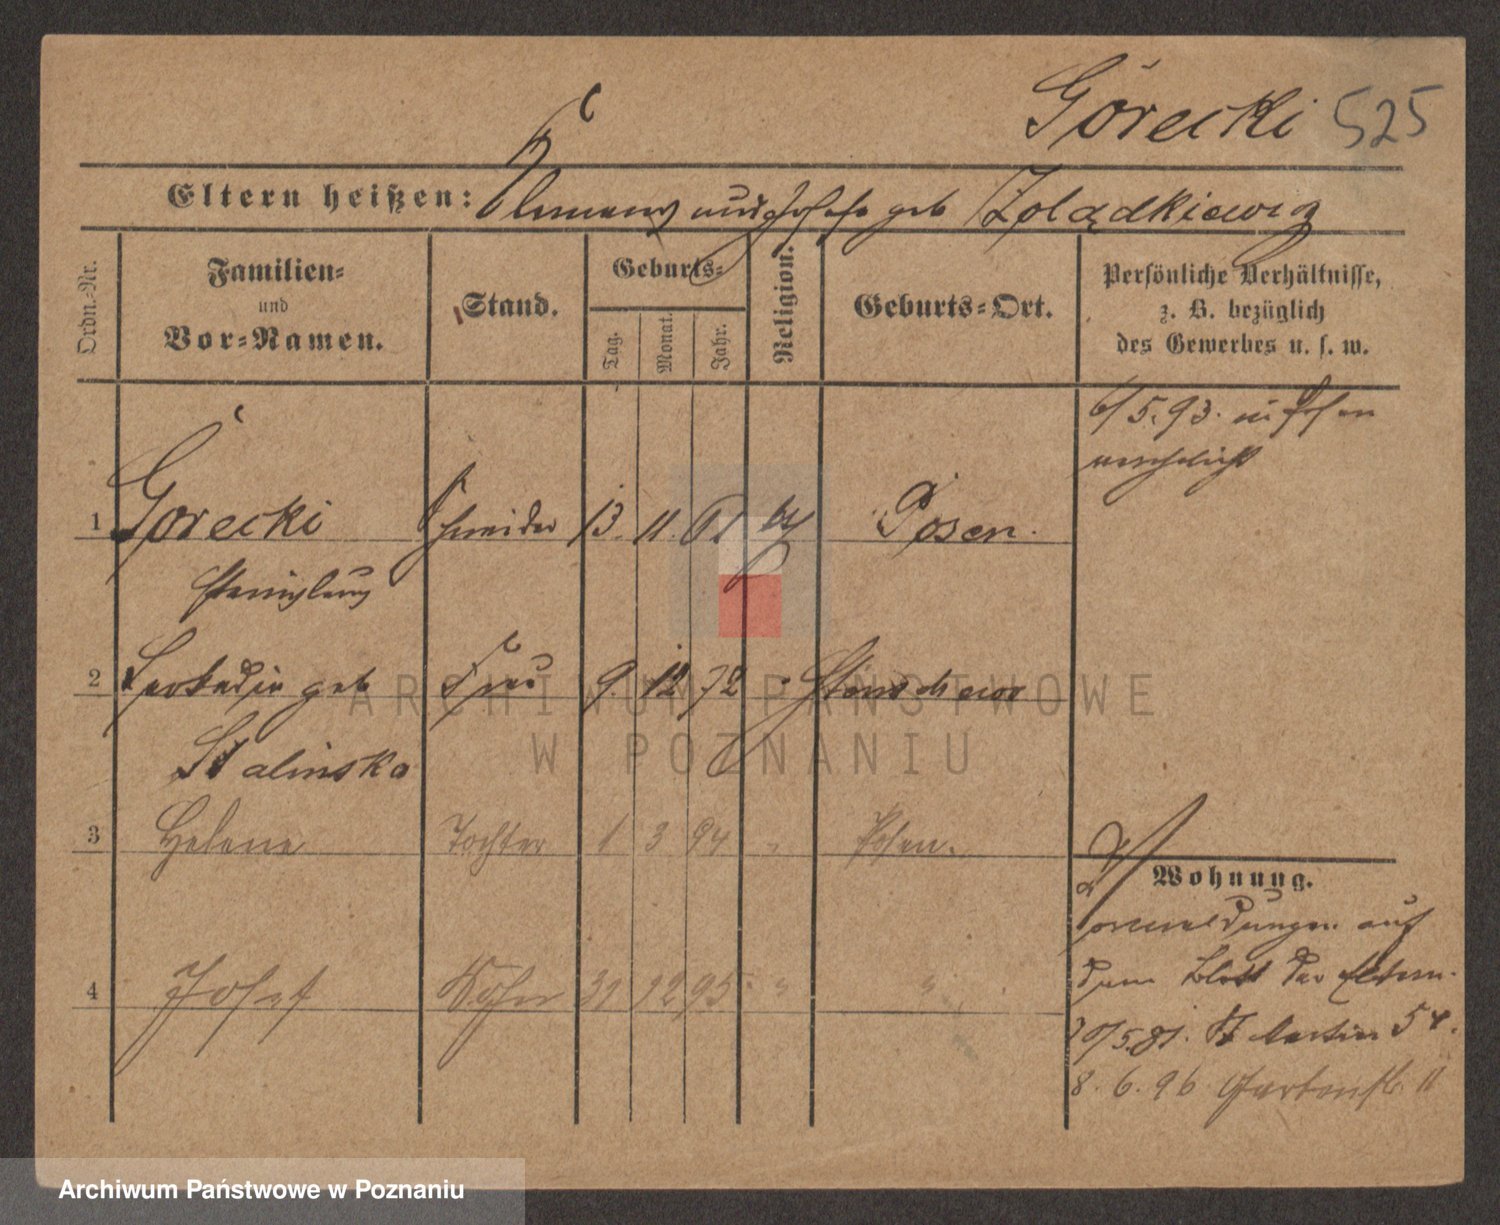 Górecki 525
Eltern heißen: Clemens und Josefa geb Żolądkiewicz
Ordn.-Nr.
Familien-
und
Vor-Namen.
Stand.
Geburts-
Tag.
Monat.
Jahr.
Religion.
Geburts-Ort.
Persönliche Verhältnisse,
z. B. bezüglich
des Gewerbes u. s. w.
6/5.93. in Posen
verehelicht
1 Górecki Schneider 13. 11. 61 kth Posen.
Stanislaus
2 Leokadia geb Frau 9. 12 72 " Stenschewo
Skalinska
3 Helene Tochter 1 3 94 " Posen.
4 Josef Sohn 31 12 95 " "
Wohnung.
Vormeldungen auf
dem Blatt der Eltern.
20/5.81. St Martin 54.
8. 6. 96 Gartenstr. 11
ARCHIWUM PAŃSTWOWE
W POZNANIU
Archiwum Państwowe w Poznaniu